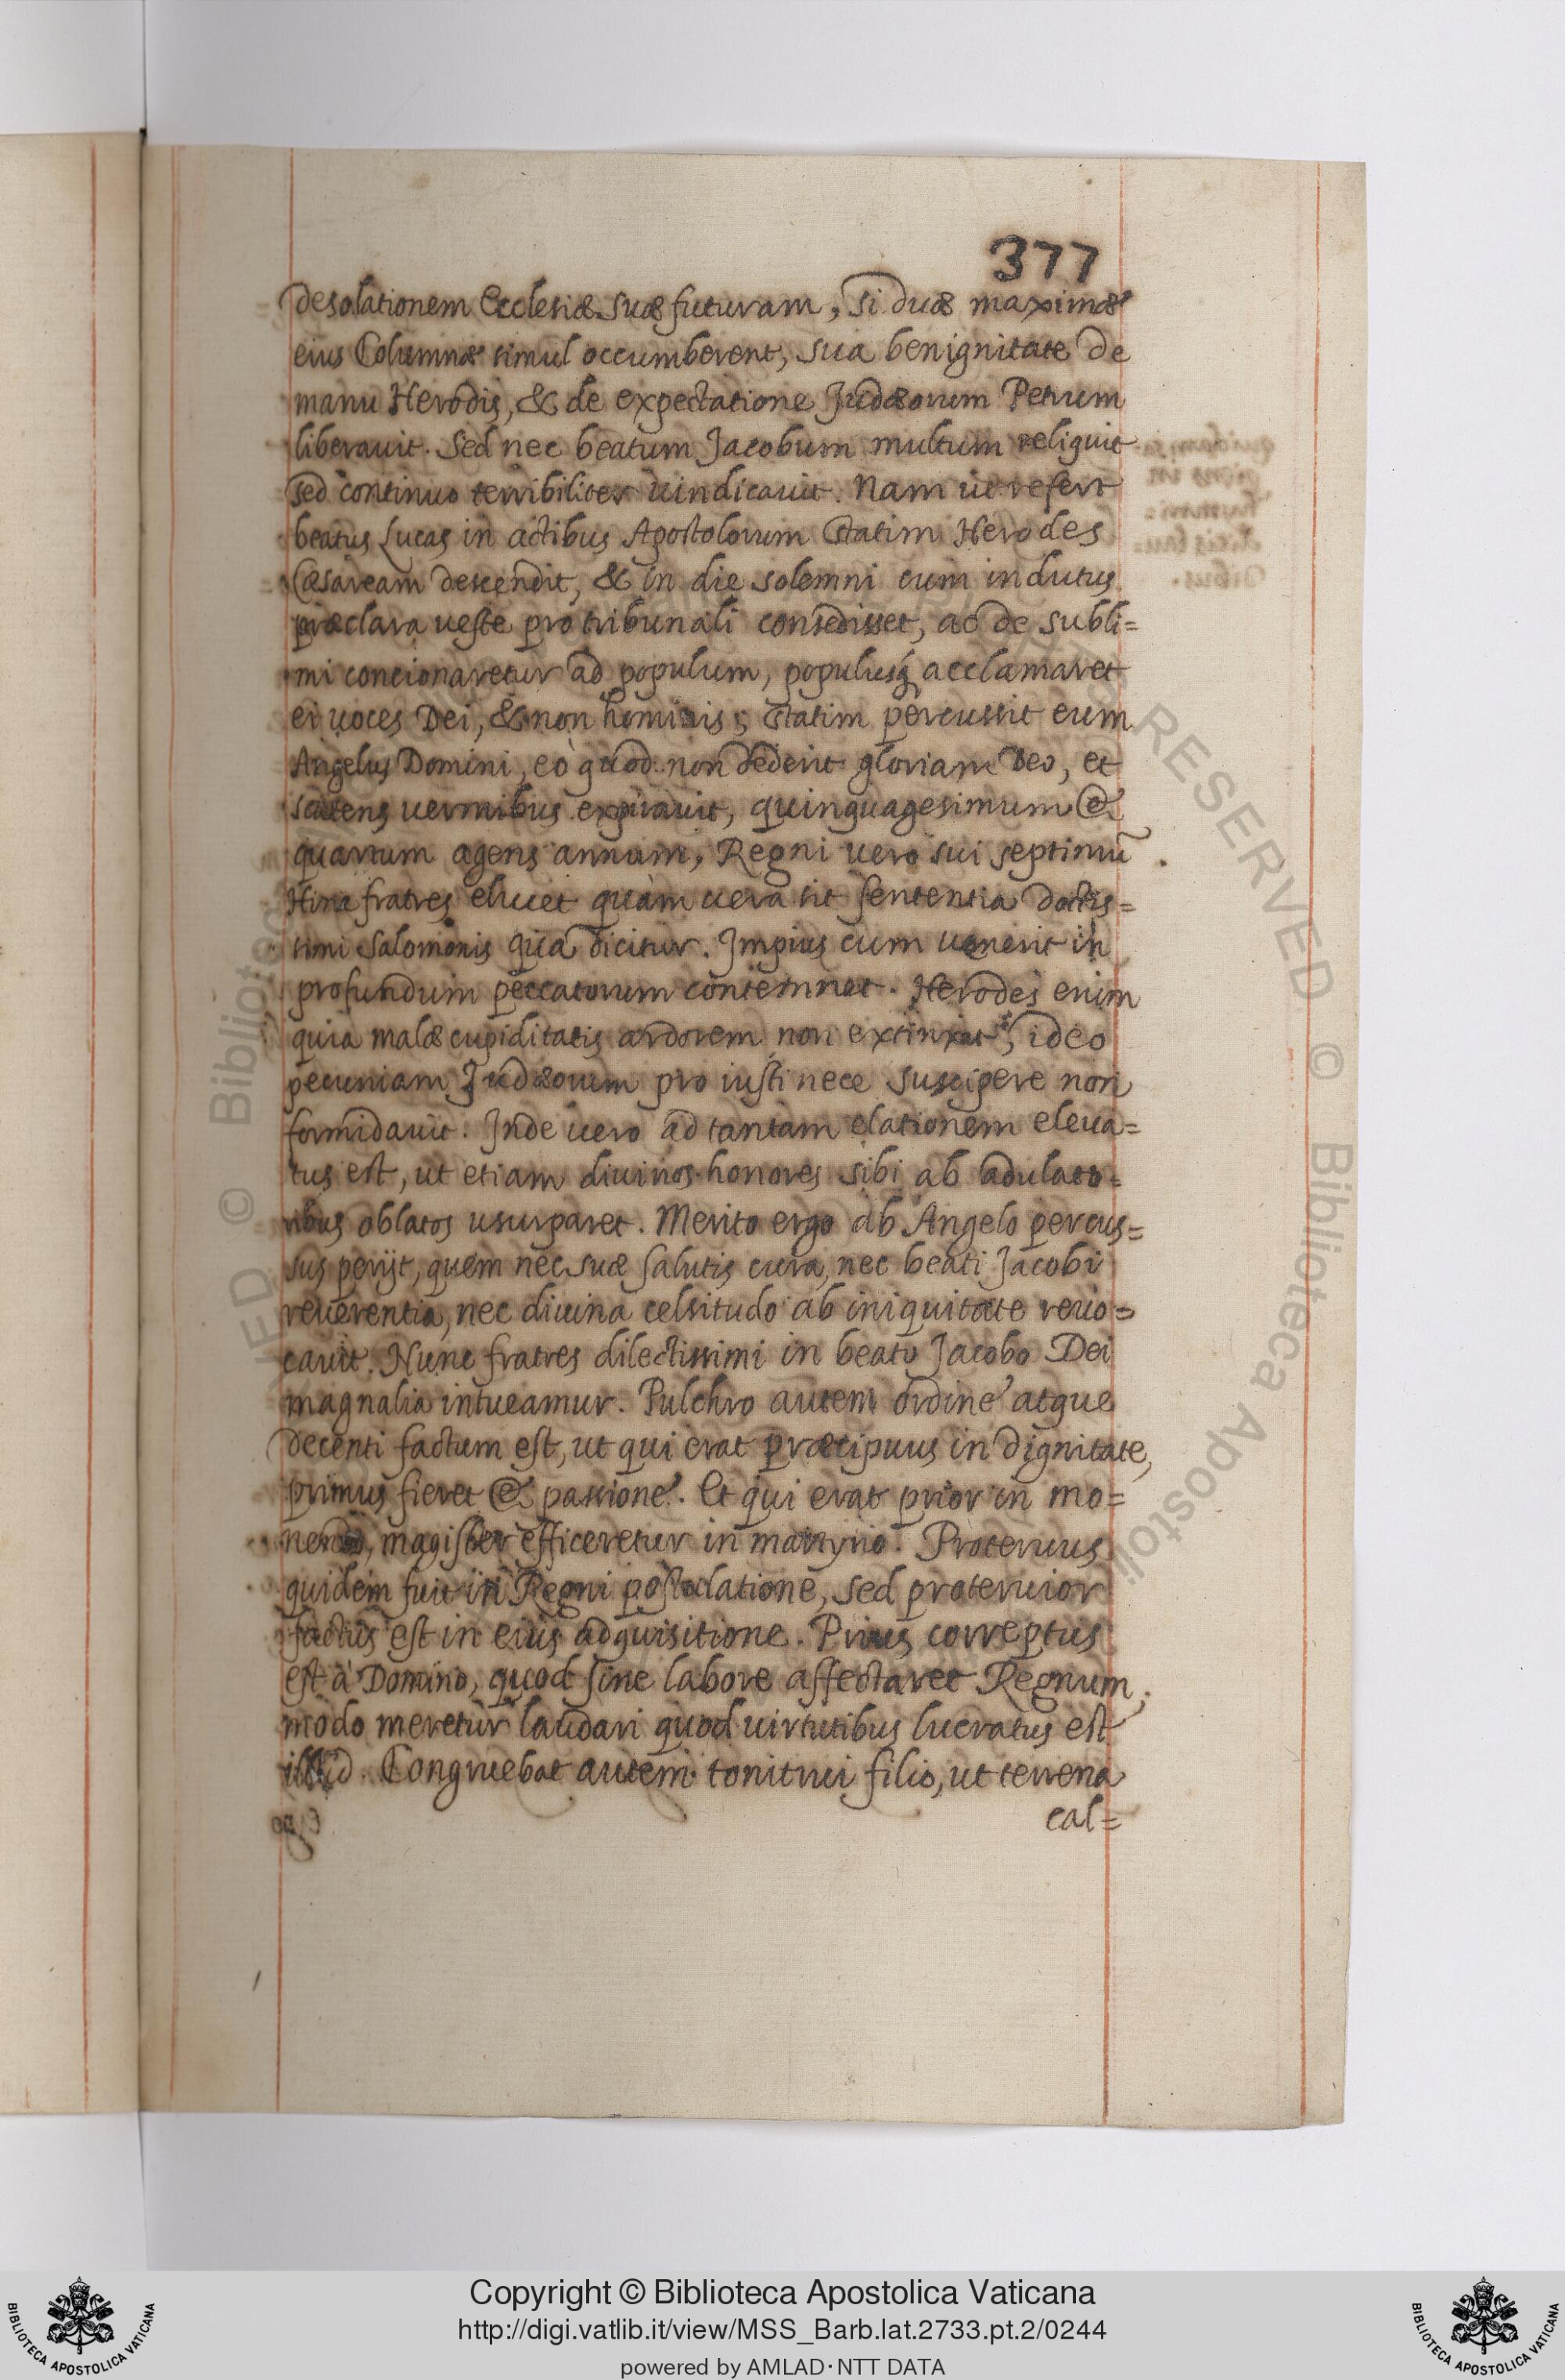 377
desolationem Ecclesiæ suæ futuram, si duæ maximæ
eius Columnæ simul occumberent, sua benignitate de
manu Herodis, & de expectatione Judæorum Petrum
liberauit. Sed nec beatum Jacobum multum reliquit
sed continuo terribiliter uindicauit. Nam ut refert
beatus Lucas in actibus Apostolorum Statim Herodes
Cæsaream descendit, & in die solemni cum indutus
præclara ueste pro tribunali consedisset, ac de subli=
mi concionaretur ad populum, populusq acclamaret
ei uoces Dei, & non hominis; statim percussit eum
Angelus Domini, eò quod non dederit gloriam Deo, et
scatens uermibus expirauit, quinquagesimum &
quartum agens annum, Regni uero sui septimũ.
Hinc fratres elucet quàm uera sit sententia doctis=
simi Salomonis qua dicitur. Impius cum uenerit in
profundum peccatorum contemnet. Herodes enim
quia malæ cupiditatis ardorem non ideo
pecuniam Judæorum pro iusti nece suscipere non
formidauit. Inde uero ad tantam elationem eleua=
tus est, ut etiam diuinos honores sibi ab adulato=
ribus oblatos usurparet. Merito ergo ab Angelo percus=
sus perijt, quem nec suæ salutis cura, nec beati Jacobi
reuerentia, nec diuina celsitudo ab iniquitate reuo=
cauit. Nunc fratres dilectissimi in beato Jacobo Dei
magnalia intueamur. Pulchro autem ordine atque
decenti factum est, ut qui erat præcipuus in dignitate,
primus fieret & passione. Et qui erat prior in mo=
nendo, magister efficeretur in martyrio. Proteruus
quidem fuit in Regni postulatione, sed proteruior
factus est in eius adquisitione. Prius correptus
est à Domino, quod sine labore affectaret Regnum,
modo meretur laudari quod uirtutibus lucratus est
illud. Congruebat autem tonitrui filio, ut terrena
cal=
RESERVED © Biblioteca Apostoli
ED © Bibliotec
Copyright © Biblioteca Apostolica Vaticana
http://digi.vatlib.it/view/MSS_Barb.lat.2733.pt.2/0244
powered by AMLAD·NTT DATA
BIBLIOTECA APOSTOLICA VATICANA
BIBLIOTECA APOSTOLICA VATICANA